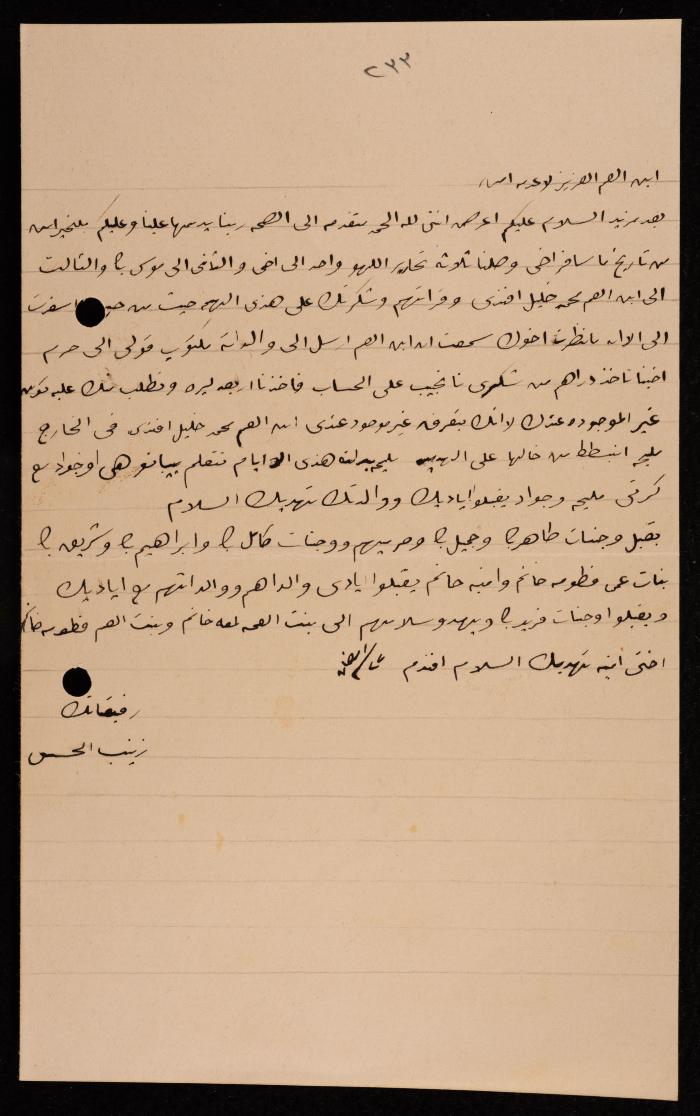 ٢٣٣
ابن العم العزيز لاعدمه امين
بعد مزيد السلام عليكم اعرض انني لله الحمد متقدمه الى الصحه ربنا يديمها علينا وعليكم بلخير امين
من تاريخ ما سافر اخي وصلنا ثلاثة تحارير الاول واحد الى اخي والثاني الى موسى بك والثالث
الى ابن العم محمد خليل افندي وقرائتهم وشكرتك على هذي الهمه حيث من سفرت
الى الان ما نظرت اخوك سمعت ان ابن العم ارسل الى والدته مكتوب قولي الى حرم
اخينا تاخذ دراهم من شكري نا نجيب على الحساب فاخذنا اربعه ليره ونطلب منك علبه
غير الموجوده عندك لانك بتعرف غير موجود عندي ابن العم محمد خليل افندي في الخارج
مليحه انبسطت من خالها على مليحه هذي الايام تتعلم بيانو هي وجواد مع
مليحه وجواد يقبلوا اياديك ووالدتك تهديك السلام
نقبل وجنات طاهر بك وجميل بك وحريمهم ووجنات كامل بك وابراهيم بك وشريف بك
بنات عمي فطومه خانم وامنه خانم يقبلوا ايادي والداهم ووالداتهم مع اياديك
ويقبلوا وجنات فريد بك ويهدو سلامهم الى بنت العمه لمعه خانم وبنت العم فطومه خانم
اختي امينه تهديك السلام افندم
رفيقاتك
زينب الحسن